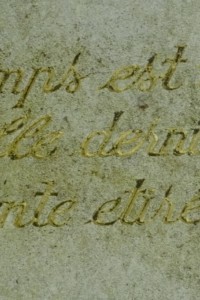 mps est
lle derni
inte etiré